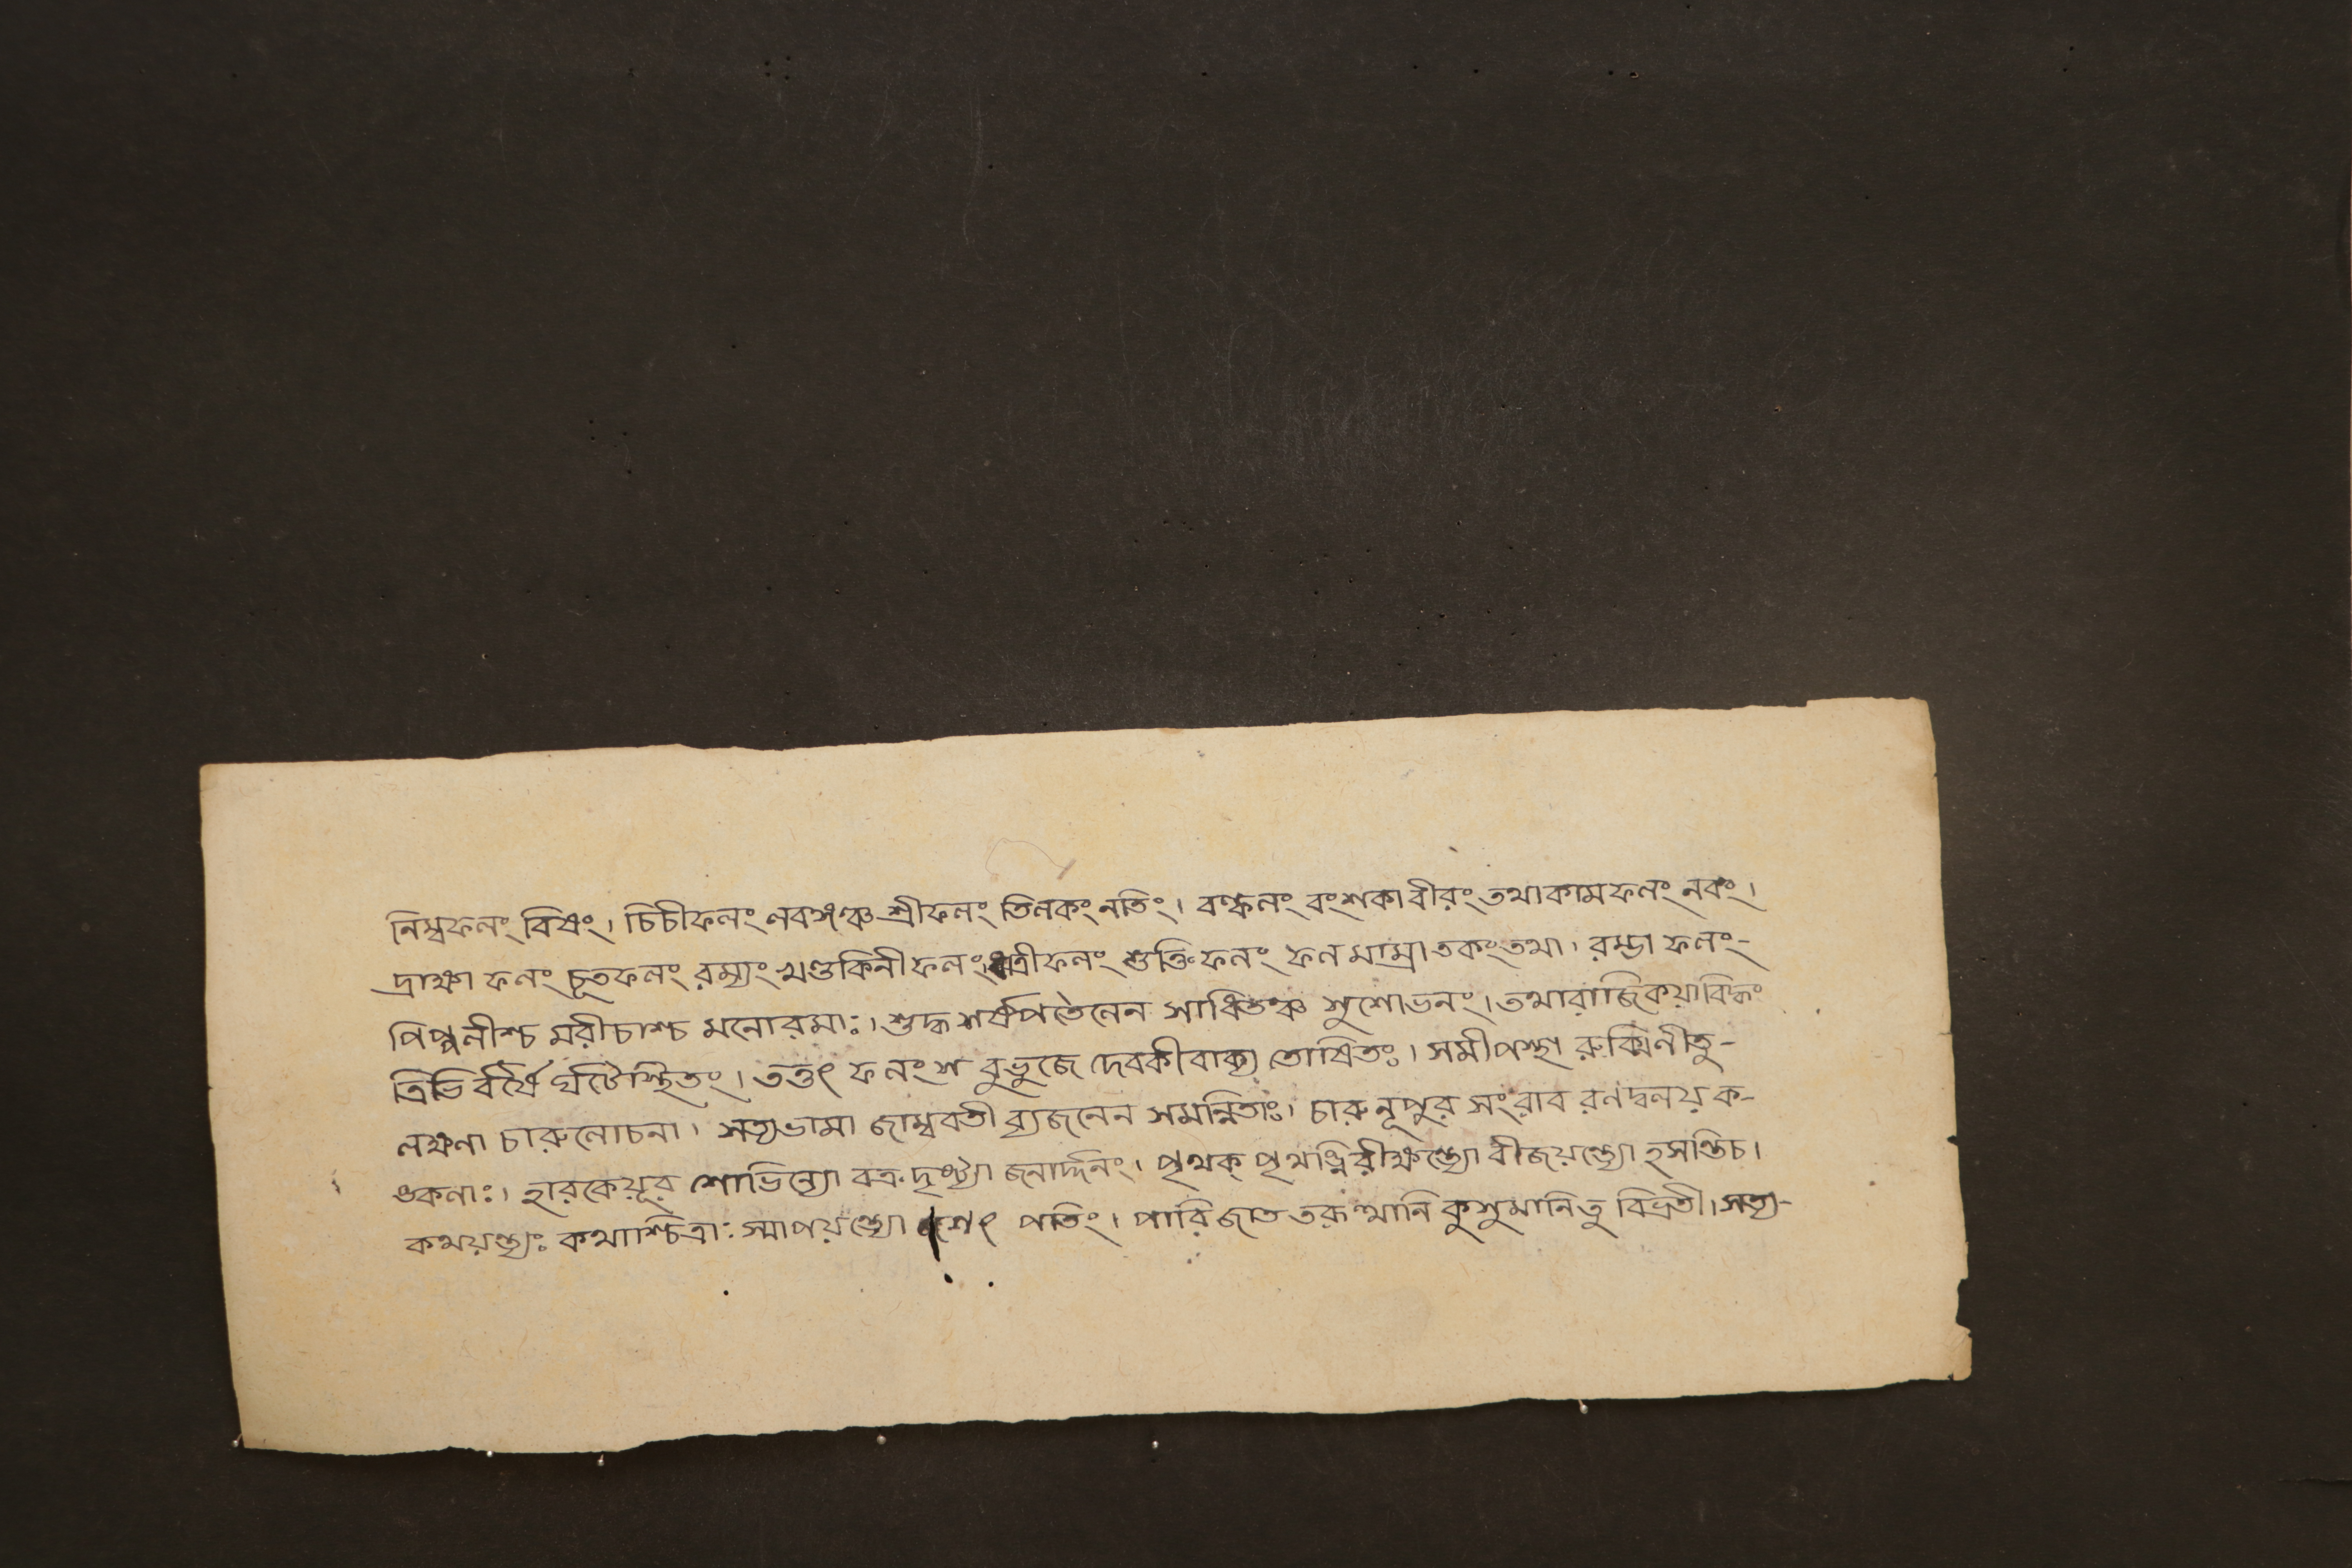 নিম্বফলং বিষং। চিচীফলং লবঙ্গঞ্চ শ্রীফলং তিলকং লতিং। বল্কলং বংশকাবীরং তথাকামফলং নবং।
দ্রাক্ষা ফলং চূতফলং রম্যং খণ্ডকিনীফলং ধাত্রীফলং শুক্তিফলং ফলমাম্রাতকং তথা। রম্ভা ফলং-
পিপ্পলীশ্চ মরীচাশ্চ মনোরমাঃ। শুদ্ধ শর্ষপতৈলেন সাধিতঞ্চ সুশোভনং। তথারাজিকয়াবিদ্ধং
ত্রিভি র্বর্ষৈ র্ঘটৈস্থিতং। তত্তৎ ফলং স বুভুজে দেবকীবাক্য তোষিতঃ। সমীপস্থা রুক্মিণীতু-
লক্ষণা চারুলোচনা। সত্যভামা জাম্ববতী ব্যজনেন সমন্বিতাঃ। চারু নূপুর সংরাব রণদ্বলয় ক-
ঙকনাঃ। হারকেয়ূর শোভিন্যো বক্র দৃষ্ট্যা জনার্দ্দনং। পৃথক্ পৃথঙ্নিরীক্ষন্ত্যো বীজয়ন্ত্যো হসন্তিচ।
কথয়ন্ত্যঃ কথাশ্চিত্রাঃ স্মাপয়ন্ত্যো পতিং। পারিজাত তরূত্থানি কুসুমানিতু বিভ্রতী। সত্য-